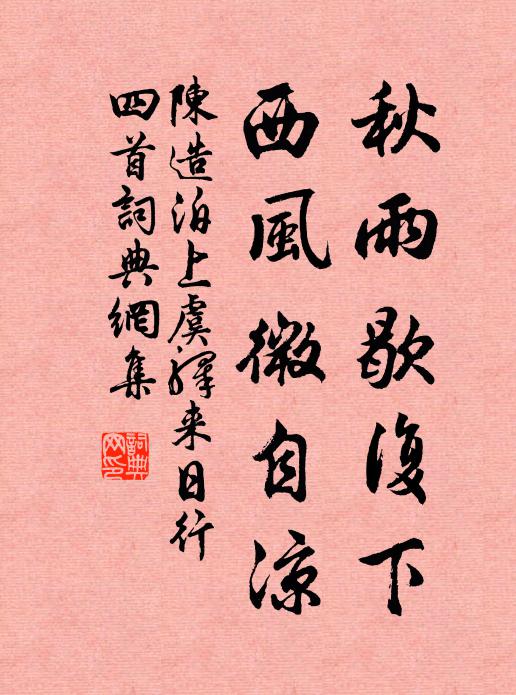 秋雨歇復下
西風微自涼
陳造泊上虞驛来日行
四首詞典網集
詞典网印